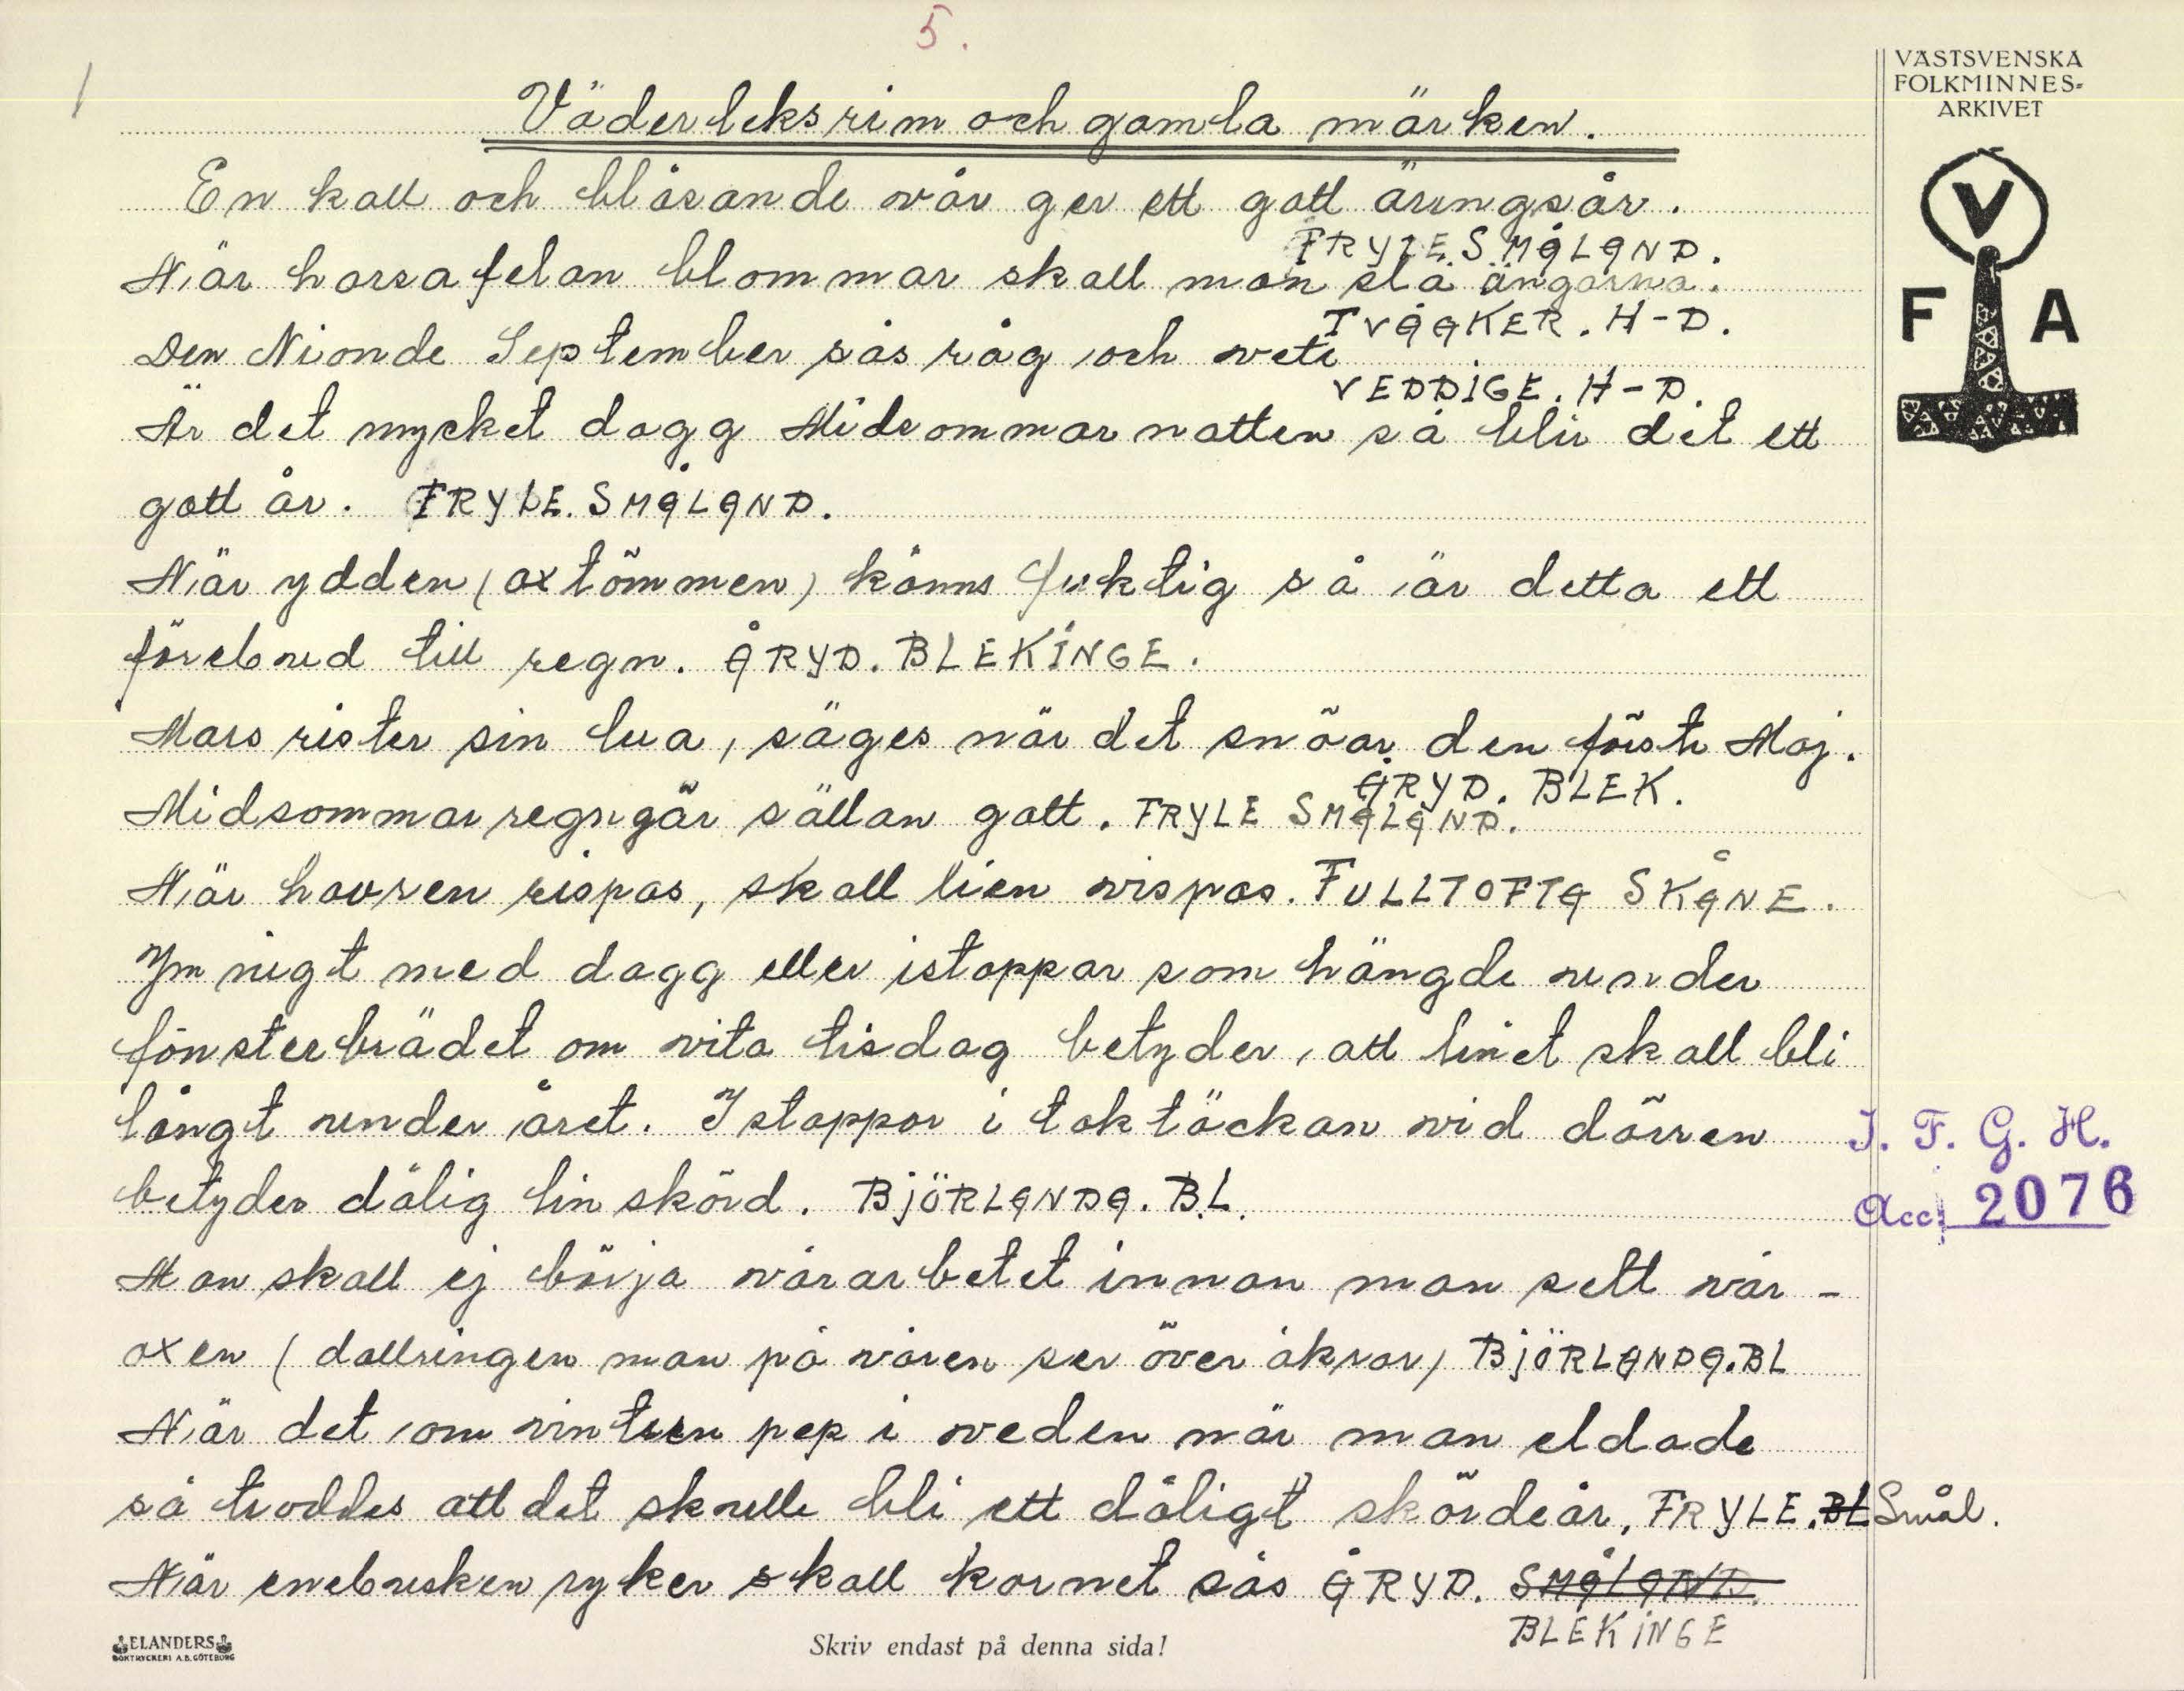 5.
1
VÄSTSVENSKA
FOLKMINNES-
ARKIVET
V
F A
Väderleksrim och gamla märken.
En kall och blåsande vår ger ett gott äringsår.
FRYLE. SMÅLAND.
När harsafelan blommar skall man slå ängarna.
TVÅÅKER. H-D.
Den Nionde September sås råg och vete
VEDDIGE. H-D.
Är det mycket dagg Midsommarnatten så blir det ett
gott år. FRYLE. SMÅLAND.
När ydden (oxtömmen) känns fuktig så är detta ett
förebud till regn. ÅRYD. BLEKINGE.
Mars rister sin lua, säges när det snöar den förste Maj.
ÅRYD. BLEK.
Midsommarregn gör sällan gott. FRYLE SMÅLAND.
När havren rispas, skall lien vispas. FULLTOFTA SKÅNE.
Ymnigt med dagg eller istappar som hängde under
fönsterbrädet om vita tisdag betyder, att linet skall bli
långt under året. Istappar i taktäckan vid dörren
betyder dålig linskörd. BJÖRLANDA. BL.
Man skall ej börja vårarbetet innan man sett vår-
oxen (dallringen man på våren ser över åkrar) BJÖRLANDA. BL
När det om vintern pep i veden när man eldade
så troddes att det skulle bli ett dåligt skördeår. FRYLE. BL Smål.
När enebusken ryker skall kornet sås ÅRYD. SMÅLAND.
BLEKINGE
J. F. G. H.
Acc. 2076
ELANDERS
BOKTRYCKERI A.B. GÖTEBORG
Skriv endast på denna sida!